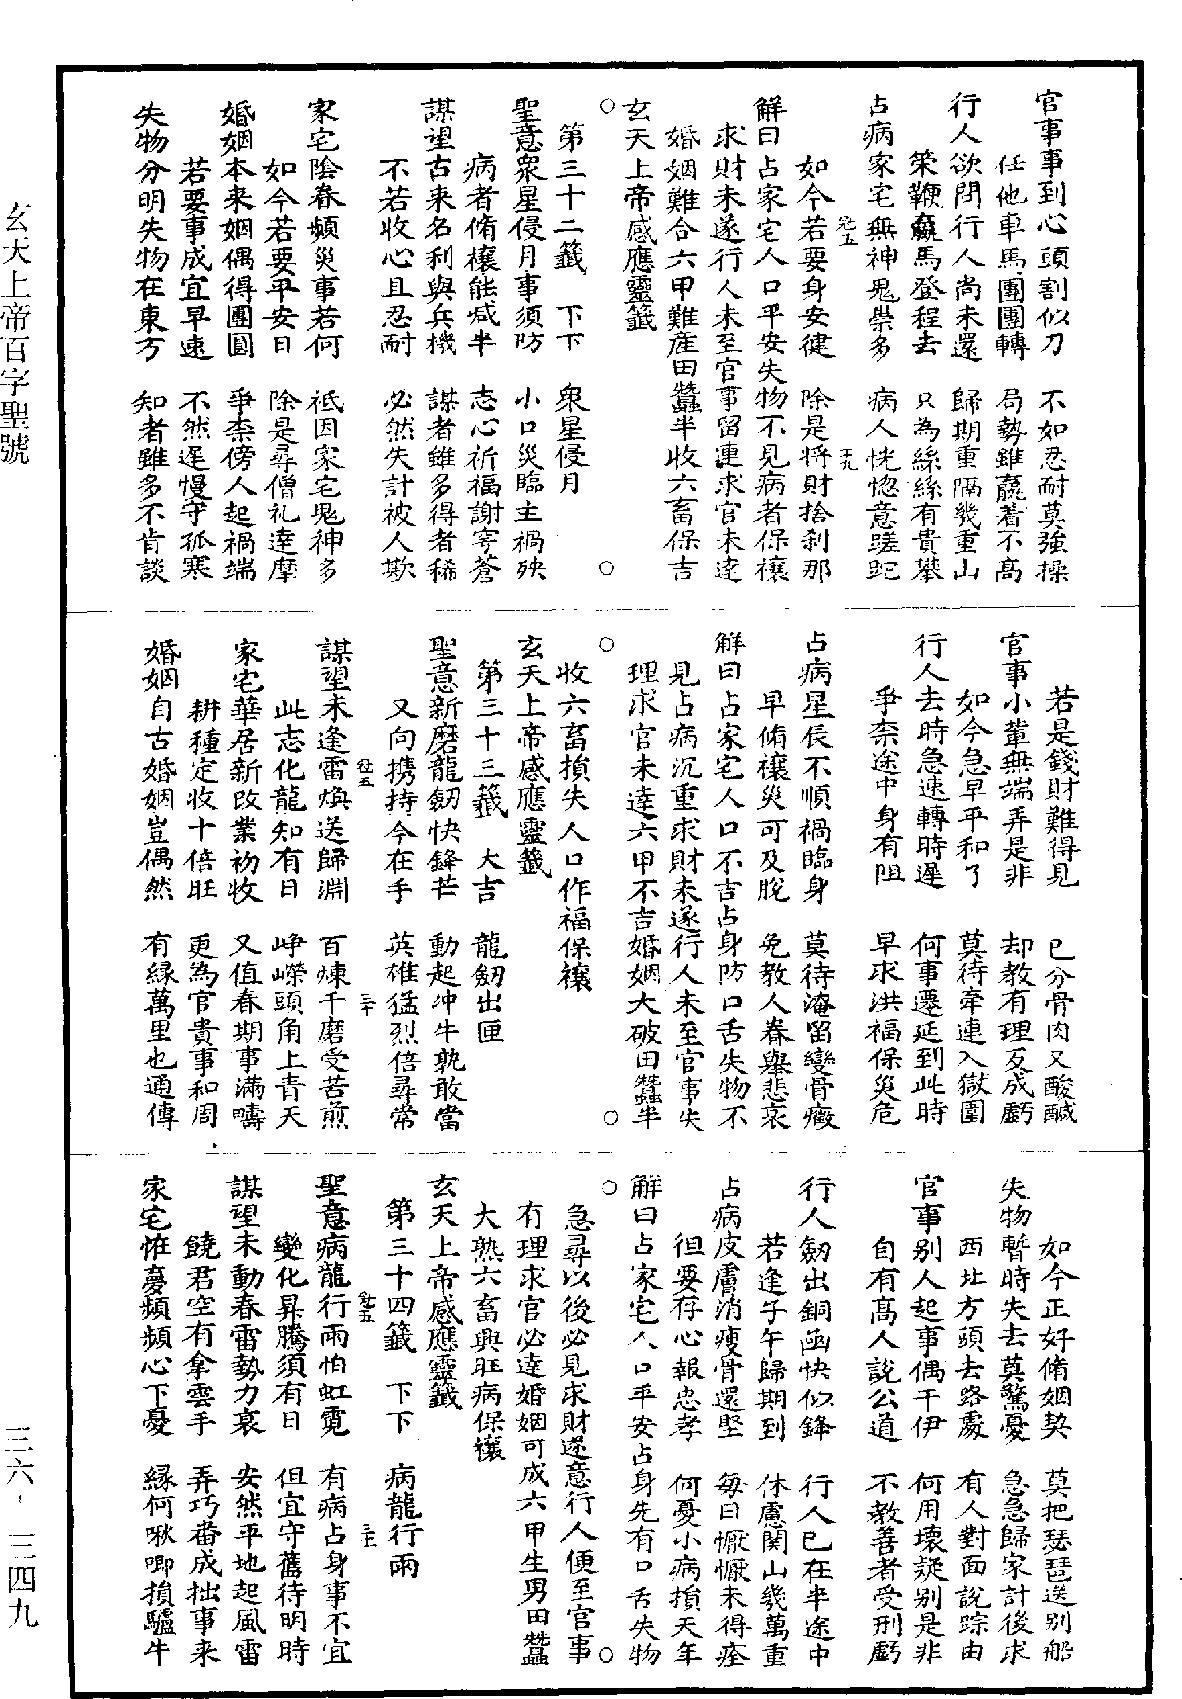 官事事到心頭割似刀　不如忍耐莫強操
任他車馬團團轉　局勢雖羸着不高
行人欲問行人尚未還　歸期重隔幾重山
策鞭羸馬登程去　只為絲絲有貴攀
占病家宅無神鬼祟多　病人恍惚意蹉跎
如今若要身安健　除是將財捨刹那
解曰占家宅人口平安失物不見病者保禳
求財未遂行人未至官事留連求官未達
婚姻難合六甲難産田蠶半收六畜保吉
○　○
玄天上帝感應靈籤
第三十二籤　下下　衆星侵月
聖意衆星侵月事須防　小口災臨主禍殃
病者脩禳能減半　志心祈福謝穹蒼
謀望古來名利與兵機　謀者雖多得者稀
不若收心且忍耐　必然失計被人欺
家宅陰春頻災事若何　祗因家宅鬼神多
如今若要平安日　除是尋僧礼達摩
婚姻本來姻偶得團圓　爭柰傍人起禍端
若要事成宜早速　不然遲慢守孤寒
失物分明失物在東方　知者雖多不肯談
若是錢財難得見　已分骨肉又酸醎
官事小輩無端弄是非　却教有理反成虧
如今急早平和了　莫待牽連入獄圍
行人去時急速轉時遲　何事遷延到此時
爭柰途中身有阻　早求洪福保災危
占病星辰不順禍臨身　莫待淹留變骨癥
早脩禳災可及脫　免教人眷舉悲哀
解曰占家宅人口不吉占身防口舌失物不
見占病沉重求財未遂行人未至官事失
理求官未達六甲不吉婚姻大破田蠶半
○　○
收六畜損失人口作福保禳
玄天上帝感應靈籤
第三十三籤　大吉　龍劒出匣
聖意新磨龍劒快鋒芒　動起冲牛孰敢當
又向携持今在手　英雄猛烈倍尋常
謀望未逢雷煥送歸淵　百煉千磨受苦煎
此志化龍知有日　崢嶸頭角上青天
家宅華居新改業初收　又值春期事滿疇
耕種定收十倍旺　更為官貴事和周
婚姻自古婚姻豈偶然　有緣萬里也通傳
如今正好脩姻契　莫把瑟琶送別船
失物暫時失去莫驚憂　急急歸家計後求
西北方頭去路處　有人對面說踪由
官事別人起事偶干伊　何用壞疑別是非
自有高人說公道　不教善者受刑虧
行人劒出銅函快似鋒　行人已在半途中
若逢子午歸期到　休慮関山幾萬重
占病皮膚消痩骨還堅　每日懨懨未得痊
但要存心報忠孝　何憂小病損天年
解曰占家宅人口平安占身先有口舌失物
○　○
急尋以後必見求財遂意行人便至官事
有理求官必達婚姻可成六甲生男田蠶
大熟六畜興旺病保禳
玄天上帝感應靈籤
第三十四籤　下下　病龍行雨
聖意病龍行雨怕虹霓　有病占身事不宜
變化昇騰須有日　但宜守舊待明時
謀望未動春雷勢力衰　安然平地起風雷
饒君空有拿雲手　弄巧番成拙事來
家宅恠憂頻頻心下憂　緣何啾唧損驢牛
玄天上帝百字聖號
三六‧三四九